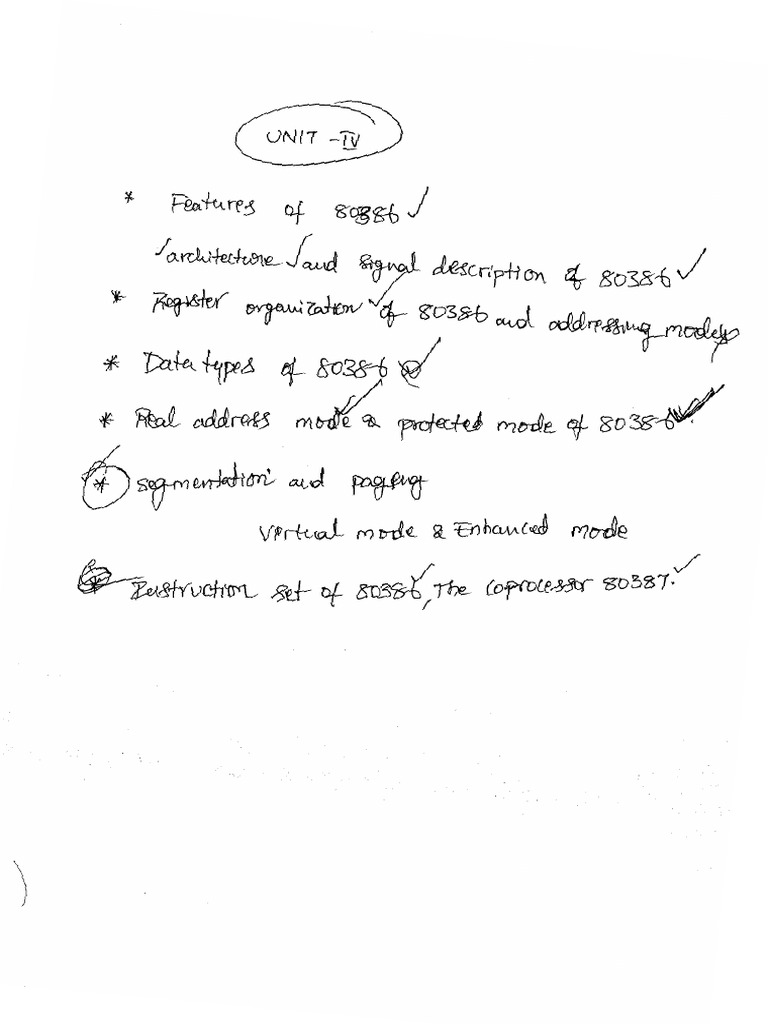 UNIT - IV
* Features of 80386 ✓
✓architecture ✓ and signal description of 80386 ✓
* Register organization ✓ of 80386 and addressing modes
* Data types of 80386 ✓
* Real address mode ✓ & protected mode of 80386 ✓
* segmentation and paging
Virtual mode & Enhanced mode
* Instruction set of 80386 ✓, The coprocessor 80387. ✓